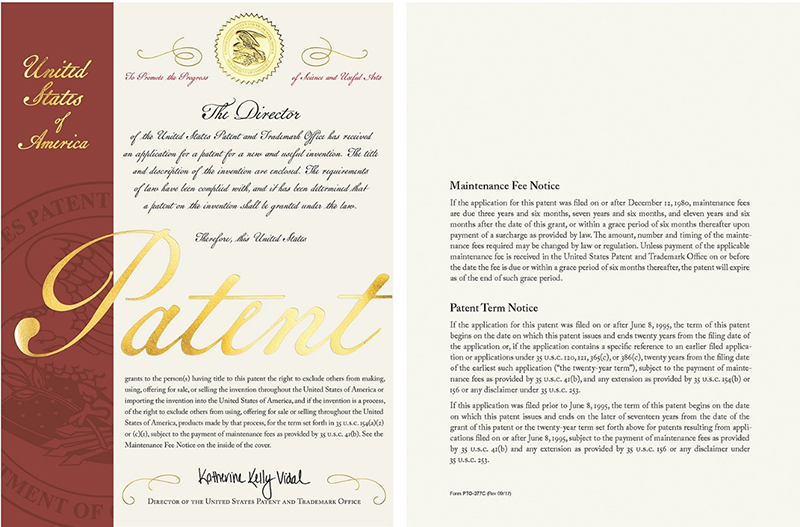 United
States
of
America
To Promote the Progress
of Science and Useful Arts
The Director
of the United States Patent and Trademark Office has received
an application for a patent for a new and useful invention. The title
and description of the invention are enclosed. The requirements
of law have been complied with, and it has been determined that
a patent on the invention shall be granted under the law.
Therefore, this United States
Patent
grants to the person(s) having title to this patent the right to exclude others from making,
using, offering for sale, or selling the invention throughout the United States of America or
importing the invention into the United States of America, and if the invention is a process,
of the right to exclude others from using, offering for sale or selling throughout the United
States of America, products made by that process, for the term set forth in 35 U.S.C. 154(a)(2)
or (c)(1), subject to the payment of maintenance fees as provided by 35 U.S.C. 41(b). See the
Maintenance Fee Notice on the inside of the cover.
Katherine Kelly Vidal
DIRECTOR OF THE UNITED STATES PATENT AND TRADEMARK OFFICE
Maintenance Fee Notice
If the application for this patent was filed on or after December 12, 1980, maintenance fees
are due three years and six months, seven years and six months, and eleven years and six
months after the date of this grant, or within a grace period of six months thereafter upon
payment of a surcharge as provided by law. The amount, number and timing of the mainte-
nance fees required may be changed by law or regulation. Unless payment of the applicable
maintenance fee is received in the United States Patent and Trademark Office on or before
the date the fee is due or within a grace period of six months thereafter, the patent will expire
as of the end of such grace period.
Patent Term Notice
If the application for this patent was filed on or after June 8, 1995, the term of this patent
begins on the date on which this patent issues and ends twenty years from the filing date of
the application or, if the application contains a specific reference to an earlier filed applica-
tion or applications under 35 U.S.C. 120, 121, 365(c), or 386(c), twenty years from the filing date
of the earliest such application ("the twenty-year term"), subject to the payment of mainte-
nance fees as provided by 35 U.S.C. 41(b), and any extension as provided by 35 U.S.C. 154(b) or
156 or any disclaimer under 35 U.S.C. 253.
If this application was filed prior to June 8, 1995, the term of this patent begins on the date
on which this patent issues and ends on the later of seventeen years from the date of the
grant of this patent or the twenty-year term set forth above for patents resulting from appli-
cations filed on or after June 8, 1995, subject to the payment of maintenance fees as provided
by 35 U.S.C. 41(b) and any extension as provided by 35 U.S.C. 156 or any disclaimer under
35 U.S.C. 253.
Form PTO-377C (Rev 09/17)